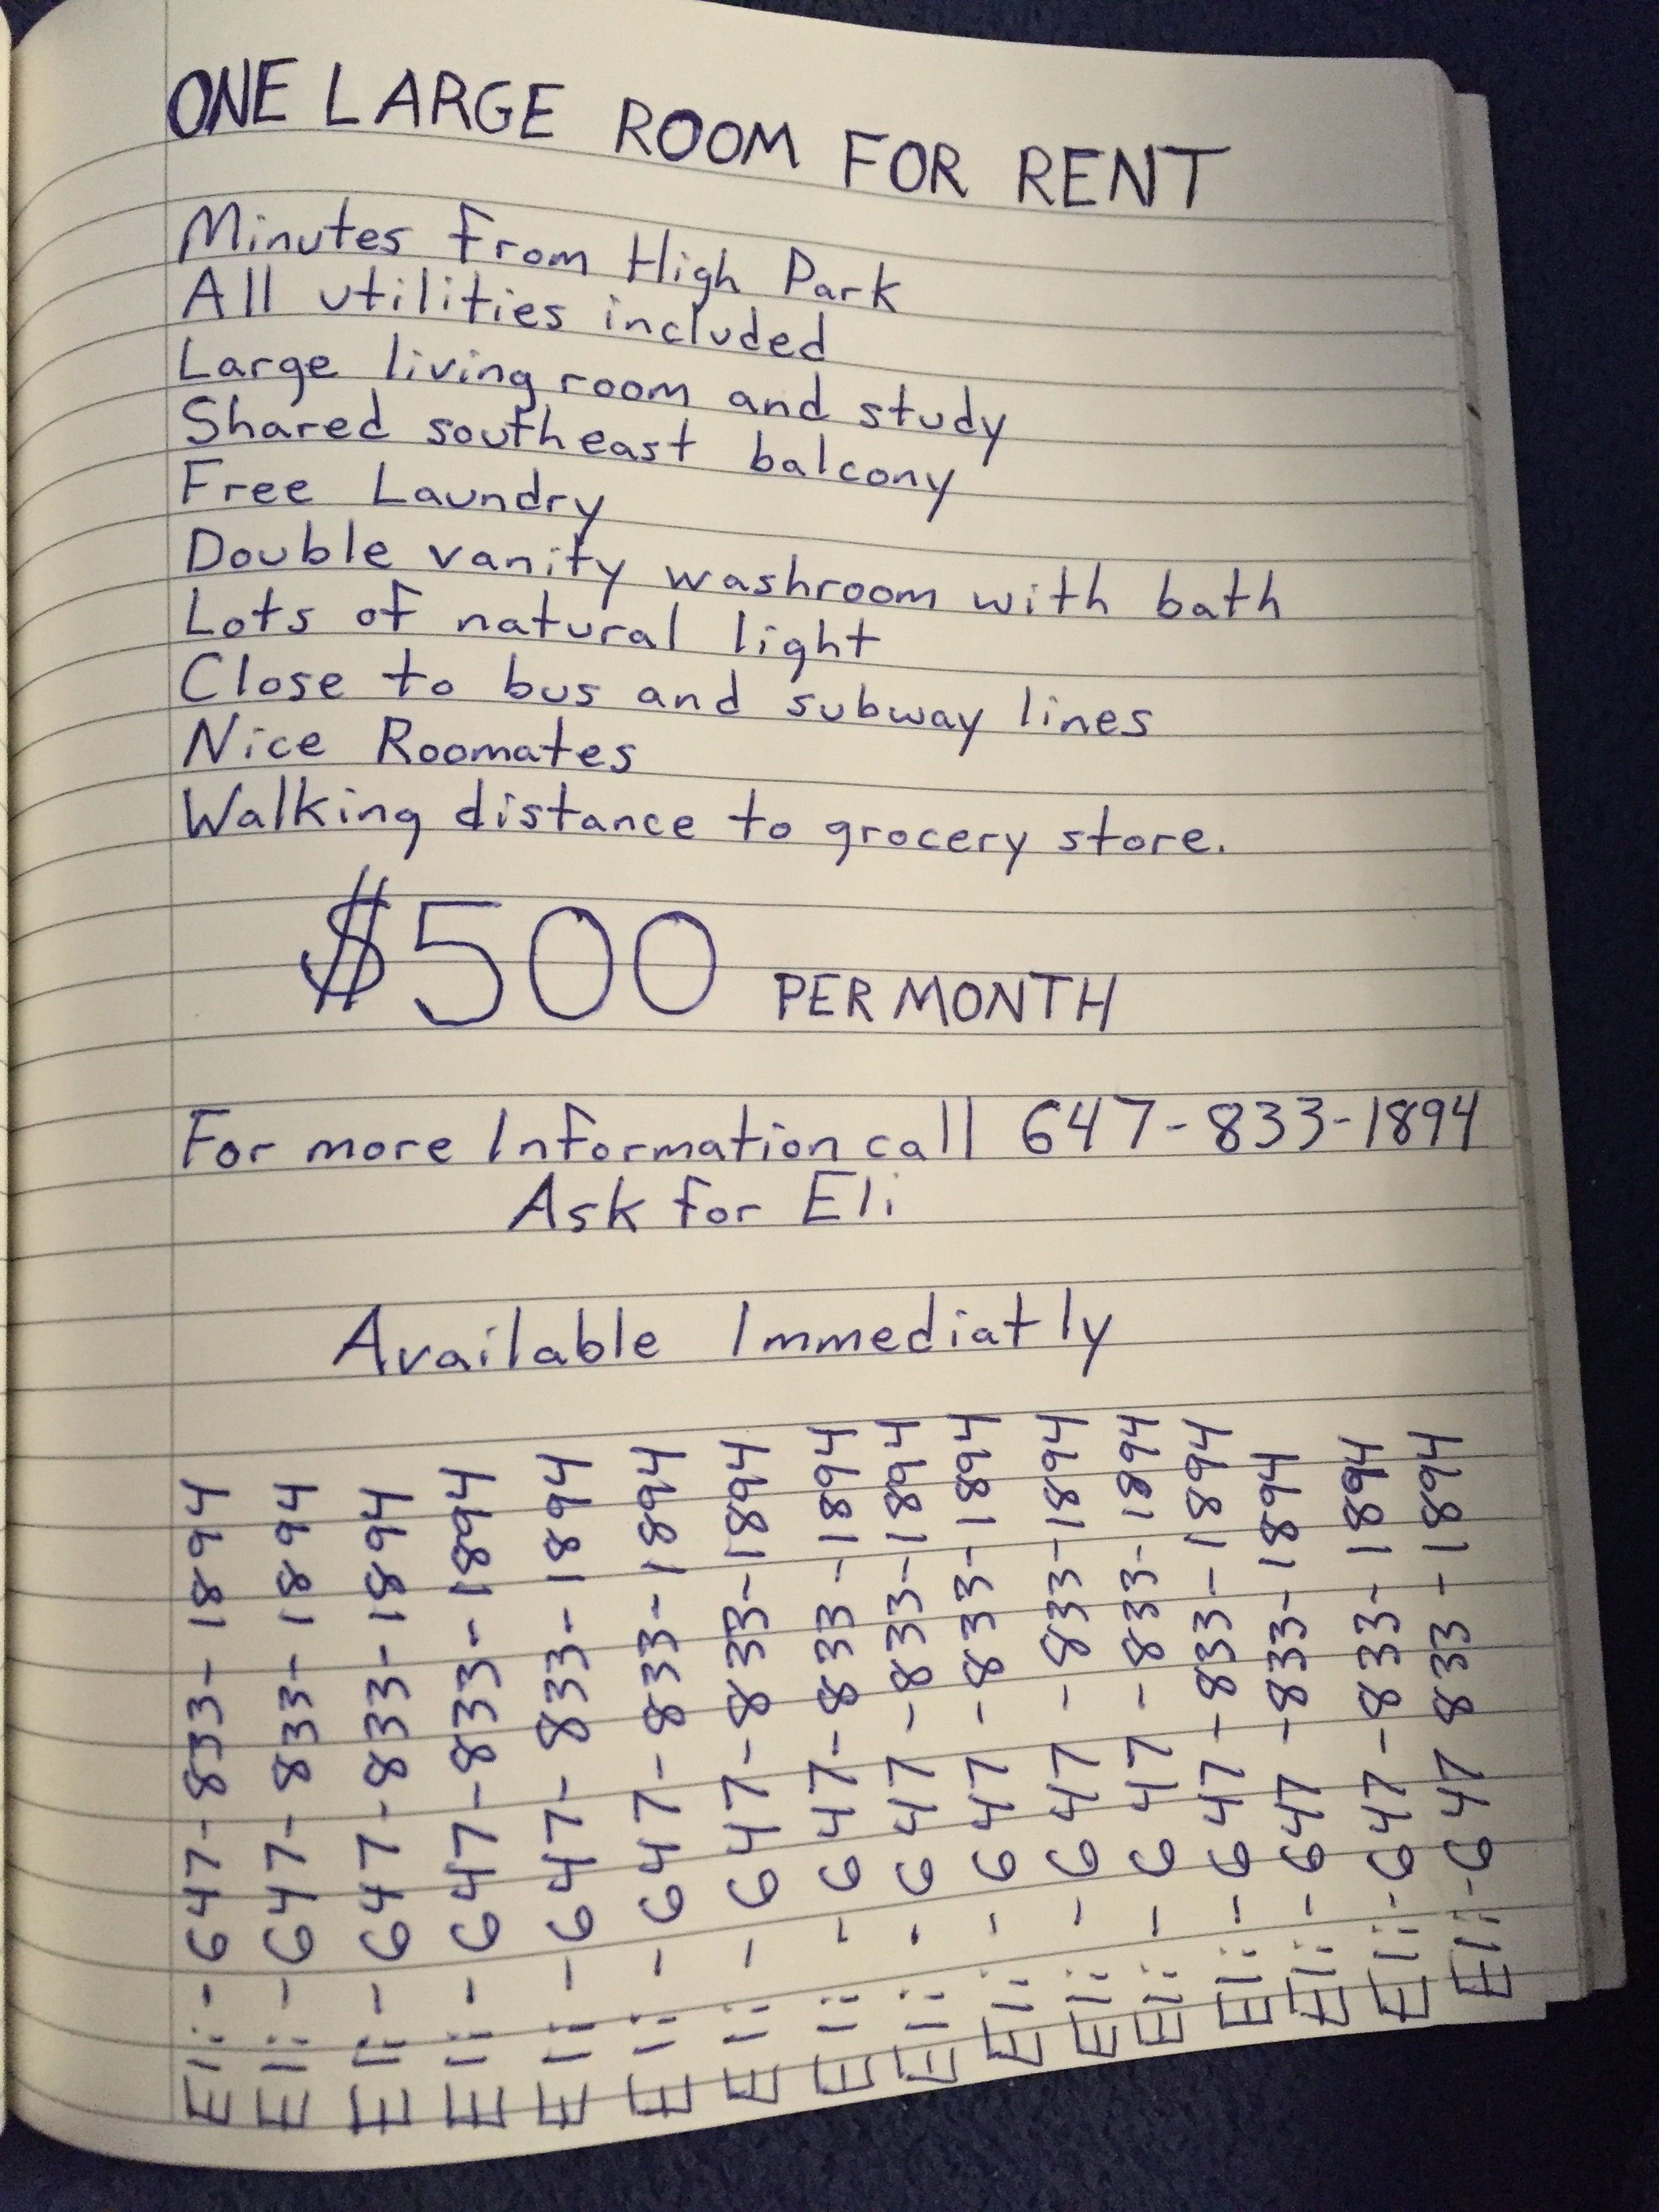 ONE LARGE ROOM FOR RENT
Minutes from High Park
All utilities included
Large living room and study
Shared southeast balcony
Free Laundry
Double vanity washroom with bath
Lots of natural light
Close to bus and subway lines
Nice Roomates
Walking distance to grocery store.
$500 PER MONTH
For more Information call 647-833-1894
Ask for Eli
Available Immediatly
Eli - 647-833-1894
Eli - 647-833-1894
Eli - 647-833-1894
Eli - 647-833-1894
Eli - 647-833-1894
Eli - 647-833-1894
Eli - 647-833-1894
Eli - 647-833-1894
Eli - 647-833-1894
Eli - 647-833-1894
Eli - 647-833-1894
Eli - 647-833-1894
Eli - 647-833-1894
Eli - 647-833-1894
Eli - 647-833-1894
Eli - 647 833-1894